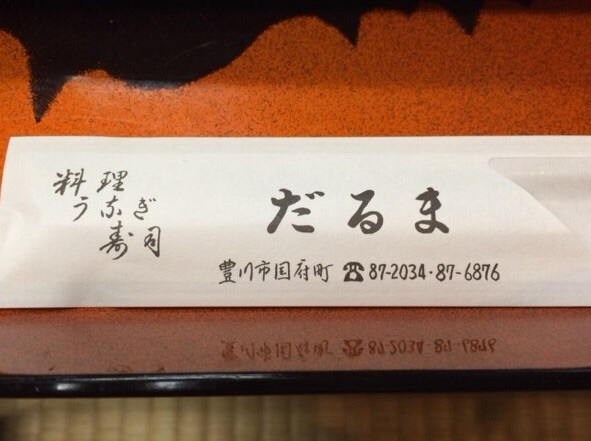 料理
うなぎ
寿司
だるま
豊川市国府町 ☎87-2034・87-6876